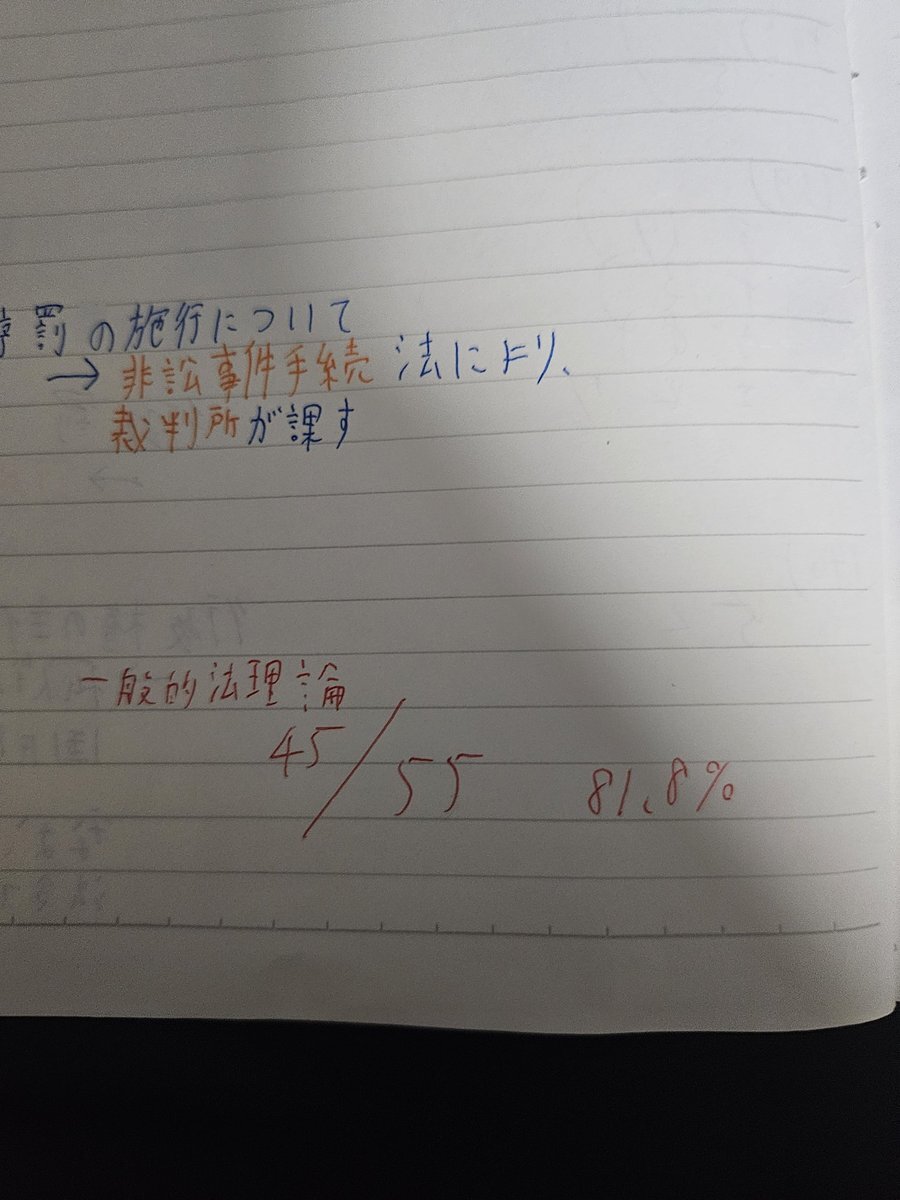 罰の施行について
→ 非訟事件手続法により、
裁判所が課す
一般的法理論
45/55 81.8%